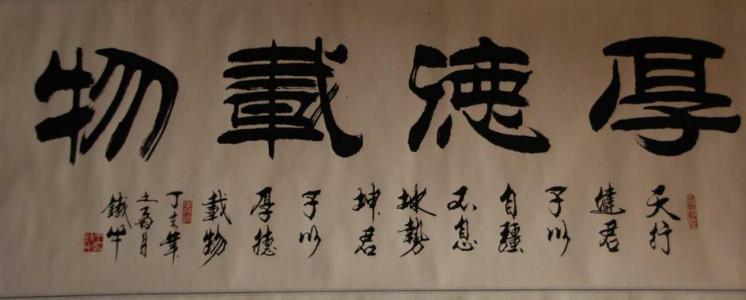 厚德載物
天行
健君
子以
自強
不息
地勢
坤君
子以
厚德
載物
丁亥年
之  月
鐵牛